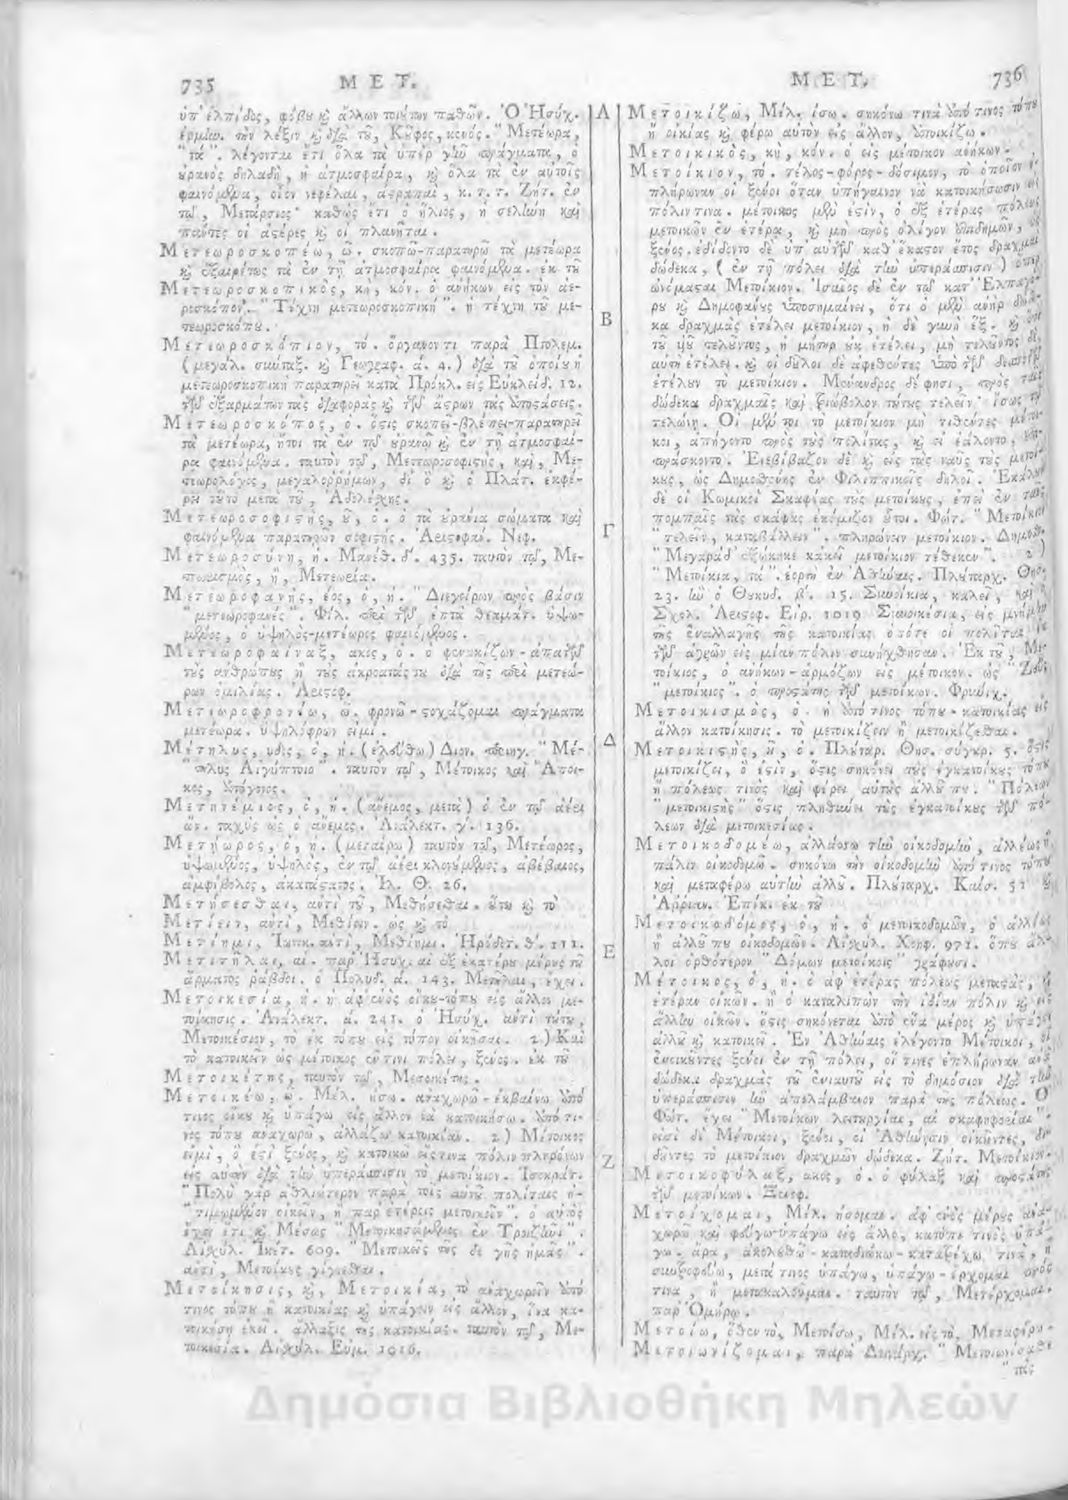 735 ΜΕΤ.
ὑπ' ἐλπίδος, φόβου καὶ ἄλλων τοιούτων παθῶν. Ὁ Ἡσύχ.
τὴν λέξιν καὶ διὰ τοῦ, Κοῦφος, κενός. " Μετέωρα,
" τὰ ". λέγονται ἔτι ὅλα τὰ ὑπὲρ γῆν πράγματα, ὁ
οὐρανὸς δηλαδὴ, ἡ ἀτμοσφαίρα, καὶ ὅλα τὰ ἐν αὐτοῖς
φαινόμενα, οἷον νεφέλαι, ἀστραπαὶ, κ. τ. τ. Ζήτ. ἐν
τῷ, Μετάρσιος· καθὼς ἔτι ὁ ἥλιος, ἡ σελήνη καὶ
πάντες οἱ ἀστέρες καὶ οἱ πλανῆται.
Μετεωροσκοπέω, ῶ. σκοπῶ-παρατηρῶ τὰ μετέωρα
καὶ ἐξαιρέτως τὰ ἐν τῇ ἀτμοσφαίρᾳ φαινόμενα. ἐκ τοῦ
Μετεωροσκοπικὸς, κὴ, κόν. ὁ ἀνήκων εἰς τὸν
" Τέχνη μετεωροσκοπικὴ ". ἡ τέχνη τοῦ με-
τεωροσκόπου.
Μετεωροσκόπιον, τό. ὄργανον τι παρὰ Πτολεμ.
( μεγάλ. συνταξ. καὶ Γεωγραφ. ά. 4. ) διὰ τοῦ ὁποίου ἡ
μετεωροσκοπικὴ παρατηρεῖ κατὰ Πρόκλ. εἰς Εὐκλείδ. 12.
τῶν ἐξαρμάτων τὰς διαφορὰς καὶ τῶν ἄστρων τὰς ἀποστάσεις.
Μετεωροσκόπος, ο. ὅστις σκοπεῖ-βλέπει-παρατηρεῖ
τὰ μετέωρα, ἤτοι τὰ ἐν τῷ οὐρανῷ καὶ ἐν τῇ ἀτμοσφαί-
ρᾳ φαινόμενα. ταυτὸν τῷ, Μετεωροσοφιστὴς, καὶ, Με-
τεωρολόγος, μεγαλορρήμων, δι' ὃ καὶ ὁ Πλάτ. ἐκφέ-
ρει τοῦτο μετὰ τοῦ, Ἀδολέσχης.
Μετεωροσοφιστὴς, οῦ, ὁ. ὁ τὰ οὐράνια σώματα καὶ
φαινόμενα παρατηρῶν σοφιστής. Ἀριστοφαν. Νεφ.
Μετεωροσύνη, ἡ. Μανέθ. δ'. 435. ταυτὸν τῷ, Με-
τεωρισμὸς, ἢ, Μετεωρεία.
Μετεωροφανὴς, έος, ὁ, ἡ. " Διεγείρων πρὸς βάσιν
" μετεωροφανές ". Φίλ. περὶ τῶν ἑπτὰ θεαμάτ. ὑψω-
μένος, ὁ ὑψηλὸς-μετέωρος φαινόμενος.
Μετεωροφαίναξ, ακος, ὁ. ὁ φενακίζων-ἀπατῶν
τοὺς ἀνθρώπους ἢ τοὺς ἀκροατάς του διὰ τῆς περὶ μετεώ-
ρων ὁμιλίας. Ἀριστοφ.
Μετεωροφρονέω, ῶ. φρονῶ-στοχάζομαι πράγματα
μετέωρα. ὑψηλόφρων εἰμί.
Μέτηλυς, υδος, ὁ, ἡ. ( ἐλεύθω ) Διον. περιηγ. " Μέ-
" τηλυς Αἰγύπτοιο ". ταυτὸν τῷ, Μέτοικος καὶ Ἄποι-
κος,
Μετηνέμιος, ὁ, ἡ. ( ἄνεμος, μετὰ ) ὁ ἐν τῷ ἀέρι
ὤν. ταχὺς ὡς ὁ ἄνεμος. Ἀνάλεκτ. γ'. 136.
Μετήωρος, ὁ, ἡ. ( μεταίρω ) ταυτὸν τῷ, Μετέωρος,
ὑψωμένος, ὑψηλὸς, ἐν τῷ ἀέρι κινούμενος, ἀβέβαιος,
ἀμφίβολος, ἀκατάστατος. Ἰλ. Θ. 26.
Μετήσεσθαι, αντὶ τοῦ, Μεθήσεσθαι. οὕτω καὶ τὸ
Μετίειν, αντὶ, Μεθίειν. ὡς καὶ τὸ
Μετίημι, Ἰων. αντὶ, Μεθίημι. Ἡρόδοτ. 111.
παρ' Ἡσυχ. αἱ ἐξ ἑκατέρου μέρους τοῦ
ἅρματος ῥάβδοι. ὁ Πολυδ. ά. 143. ἔχει.
Μετοικεσία, ἡ. ἡ ἀφ' ἑνὸς οἴκου-τόπου εἰς ἄλλον με-
τοίκησις. Ἀνάλεκτ. ά. 241. ὁ Ἡσύχ. ἀντὶ τούτου,
Μετοικέσιον, τὸ ἐκ τόπου εἰς τόπον οἰκῆσαι. 2.) Καὶ
τὸ κατοικεῖν ὡς μέτοικος ἔν τινι πόλει, ξένος. ἐκ τοῦ
Μετοικέτης, ταυτὸν τῷ,
Μετοικέω, ῶ. Μέλ. ήσω. ἀναχωρῶ-ἐκβαίνω ἀπό
τινος οἴκου καὶ ὑπάγω εἰς ἄλλον νὰ κατοικήσω. ἀπό τι-
νος τόπου ἀναχωρῶ, ἀλλάζω κατοικίαν. 2.) Μέτοικος
εἰμὶ, ὅ ἐστι ξένος, καὶ κατοικῶ εἴς τινα πόλιν πληρόνων
εἰς αὐτὴν διὰ τὴν ὑπεράσπισιν τὸ μετοίκιον. Ἰσοκράτ.
" Πολὺ γὰρ ἀθλιώτερον παρὰ τοῖς αὐτοῦ πολίταις ἠ-
" τιμωμένον οἰκεῖν, ἢ παρ' ἑτέροις μετοικεῖν ". ὁ αὐτὸς
ἔχει ἔτι καὶ Μέσως " Μετοικησάμενος ἐν Τροιζῆνι ".
Αἰσχύλ. Ἱκέτ. 609. " Μετοικεῖν τῆς δε γῆς ἡμᾶς ".
αντὶ, Μετοίκους γίγνεσθαι.
Μετοίκησις, καὶ, Μετοικία, τὸ ἀναχωρεῖν ἀπό
τινος τόπου ἢ κατοικίας καὶ ὑπάγειν εἰς ἄλλον, ἵνα κα-
τοικήσῃ ἐκεῖ. ἄλλαξις τῆς κατοικίας. ταυτὸν τῷ, Με-
τοικεσία. Αἰσχύλ. Εὐμ. 1016.
Α
Β
Γ
Δ
Ε
Ζ
ΜΕΤ. 736
Μετοικίζω, Μέλ. ίσω. σηκόνω τινὰ ἀπό τινος τόπου
ἢ οἰκίας καὶ φέρω αὐτὸν εἰς ἄλλον, ἀποικίζω.
Μετοικικὸς, κὴ, κόν. ὁ εἰς μέτοικον ἀνήκων.
Μετοίκιον, τό. τέλος-φόρος-δόσιμον, τὸ ὁποῖον
πλήρωναν οἱ ξένοι ὅταν ὑπήγαινον νὰ κατοικήσωσιν εἰς
πόλιν τινα. μέτοικος μὲν ἐστὶν, ὁ ἐξ ἑτέρας πόλεως
μετοικῶν ἐν ἑτέρᾳ, καὶ μὴ πρὸς ὀλίγον ἐπιδημῶν, ὡς
ξένος. ἐδίδοντο δὲ ὑπ' αὐτῶν καθ' ἕκαστον ἔτος δραχμαὶ
δώδεκα, ( ἐν τῇ πόλει διὰ τὴν ὑπεράσπισιν ) ὅπερ
ὠνόμασται Μετοίκιον. Ἰσαῖος δὲ ἐν τῷ κατ' Ἐλπαγό-
ρου καὶ Δημοφάνους ὑποσημαίνει, ὅτι ὁ μὲν ἀνὴρ δώδε-
κα δραχμὰς ἐτέλει μετοίκιον, ἡ δὲ γυνὴ ἕξ. καὶ ὅτι
τοῦ υἱοῦ τελοῦντος, ἡ μήτηρ οὐκ ἐτέλει, μὴ τελοῦντος δὲ,
αὐτὴ ἐτέλει. καὶ οἱ δοῦλοι δὲ ἀφεθέντες ὑπὸ τῶν δεσποτῶν
ἐτέλουν τὸ μετοίκιον. Μένανδρος δέ φησι, πρὸς ταῖς
δώδεκα δραχμαῖς καὶ τριώβολον τούτους τελεῖν· ἴσως τῷ
τελώνῃ. Οἱ μέν τοι τὸ μετοίκιον μὴ τιθέντες μέτοι-
κοι, ἀπήγοντο πρὸς τοὺς πολίτας, καὶ εἰ ἑάλοντο,
ἐπιπράσκοντο. Ἐνεβίβαζον δὲ καὶ εἰς τὰς ναῦς τοὺς μετοί-
κους, ὡς Δημοσθένης ἐν Φιλιππικοῖς δηλοῖ. Ἐκάλουν
δὲ οἱ Κωμικοὶ Σκαφέας τοὺς μετοίκους, ἐπεὶ ἐν ταῖς
πομπαῖς τὰς σκάφας ἐκόμιζον οὗτοι. Φώτ. " Μετοίκιον
" τελεῖν, καταβάλλειν ". πληρώνειν μετοίκιον. Δημοσθ.
" Μεγαρόδ' ἐξῴκηκε κἀκεῖ μετοίκιον τέθεικεν ". 2.)
" Μετοίκια, τὰ ". ἑορτὴ ἐν Ἀθήναις. Πλούταρχ. Θησ.
23. ἣν ὁ Θουκυδ. β'. 15. Συνοίκια, καλεῖ, καὶ ὁ
Σχολ. Ἀριστοφ. Εἰρ. 1019 Συνοικέσια, εἰς μνήμην
τῆς ἐναλλαγῆς τῆς κατοικίας ὁπότε οἱ πολίται ἐκ
τῶν ἀγρῶν εἰς μίαν πόλιν συνήχθησαν. Ἐκ τοῦ, Με-
τοίκιος, ὁ ἀνήκων-ἁρμόζων εἰς μέτοικον. ὡς " Ζεὺς
" μετοίκιος ". ὁ προστάτης τῶν μετοίκων. Φρύνιχ.
Μετοικισμὸς, ὁ. ἡ ἀπό τινος τόπου-κατοικίας εἰς
ἄλλον κατοίκησις. τὸ μετοικίζειν ἢ μετοικίζεσθαι.
Μετοικιστὴς, οῦ, ὁ. Πλούταρ. Θησ. σύγκρ. 5. ὅστις
μετοικίζει, ὅ ἐστὶν, ὅστις σηκόνει τοὺς ἐγκατοίκους τόπου
ἢ πόλεως τινὸς καὶ φέρει αὐτοὺς ἀλλοῦ που. " Πόλεων
" μετοικιστὴς " ὅστις πληθύνει τοὺς ἐγκατοίκους τῶν πό-
λεων διὰ μετοικεσίας.
Μετοικοδομέω, ἀλλάσσω τὴν οἰκοδομὴν, ἀλλέως ἢ
πάλιν οἰκοδομῶ. σηκόνω τὴν οἰκοδομὴν ἀπό τινος τόπου
καὶ μεταφέρω αὐτὴν ἀλλοῦ. Πλούταρχ. Καίσ. 51
Ἀρριαν. Ἐπίκ. ἐκ τοῦ
Μετοικοδόμος, ὁ, ἡ. ὁ μετοικοδομῶν, ὁ ἀλλέως
ἢ ἀλλοῦ που οἰκοδομῶν. Αἰσχύλ. Χοηφ. 971. ὅπου ἄλ-
λοι ὀρθότερον " Δόμων μετοίκοις " γράφουσι.
Μέτοικος, ὁ, ἡ. ὁ ἀφ' ἑτέρας πόλεως μεταστὰς,
ἑτέραν οἰκῶν. ἢ ὁ καταλιπὼν τὴν ἰδίαν πόλιν καὶ εἰς
ἄλλην οἰκῶν. ὅστις σηκόνεται ἀπὸ ἕνα μέρος καὶ ὑπάγει
ἀλλοῦ καὶ κατοικεῖ. Ἐν Ἀθήναις ἐλέγοντο Μέτοικοι, οἱ
ἐνοικοῦντες ξένοι ἐν τῇ πόλει, οἵ τινες ἐπλήρωναν ἀνὰ
δώδεκα δραχμὰς τοῦ ἐνιαυτοῦ εἰς τὸ δημόσιον διὰ τὴν
ὑπεράσπισιν ἣν ἀπολάμβανον παρὰ τῆς πόλεως. Ὁ
Φώτ. ἔχει " Μετοίκων λειτουργίαι, αἱ σκαφηφορίαι ".
εἰσὶ δὲ Μέτοικοι, ξένοι, οἱ Ἀθήνησιν οἰκοῦντες, δι-
δόντες τὸ μετοίκιον δραχμῶν δώδεκα. Ζήτ. Μετοίκιον.
Μετοικοφύλαξ, ακος, ὁ. ὁ φύλαξ καὶ προστάτης
τῶν μετοίκων. Ξενοφ.
Μετοίχομαι, Μέλ. ήσομαι. ἀφ' ἑνὸς μέρους ἀνα-
χωρῶ καὶ φεύγω-ὑπάγω εἰς ἄλλο, κατόπι τινὸς ὑπά-
γω. ἄρα, ἀκολουθῶ-καταδιώκω-κατατρέχω τινα, ἢ
συστρέφομαι, μετά τινος ὑπάγω, ὑπάγω-ἔρχομαι πρός
τινα, ἢ μετακαλοῦμαι. ταυτὸν τῷ, Μετέρχομαι.
παρ' Ὁμήρῳ.
Μετοίω, ὅθεν τὸ, Μετοίσω, Μέλ. εἰς τὸ, Μεταφέρω.
Μετοιωνίζομαι, παρὰ Δεινάρχ. " Μετοιωνίσασθαι
" τῆς
Δημόσια Βιβλιοθήκη Μηλεών